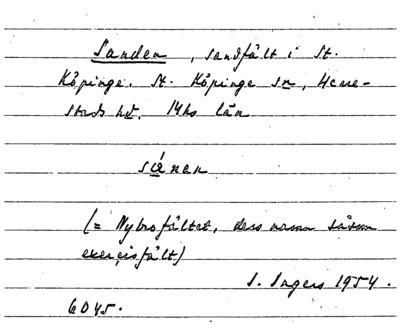 Sanden, sandfält i St.
Köpinge. St. Köpinge sn, Herre-
stads hd. Mhs län
sánen
(= Nybrofältet, dess namn såsom
exercisfält)
S. Ingers 1954.
6045.